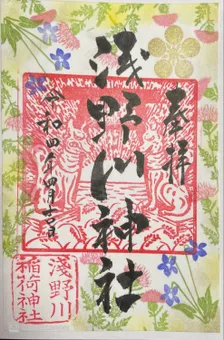 奉拝
浅野川神社
令和四年四月十二日
淺野川
稲荷神社